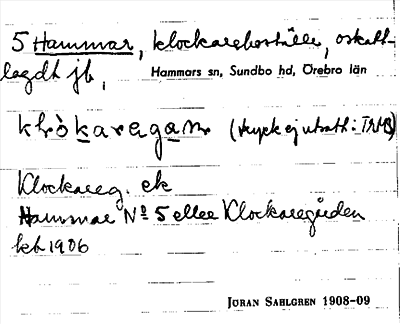 5 Hammar, klockareboställe, oskatt-
lagdt jb,
Hammars sn, Sundbo hd, Örebro län
klòkaregaṇ (tryck ej utsatt: TRMS)
Klockareg. ek
Hammar Nº 5 eller Klockaregården
kb 1906
JÖRAN SAHLGREN 1908-09